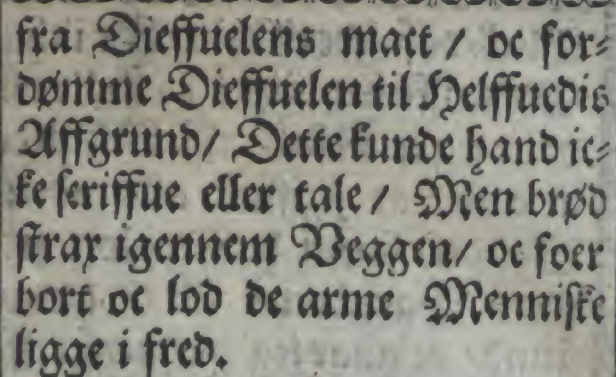 fra Dieffuelens mact / oc for⸗
dømme Dieffuelen til Helffuedis
Affgrund / Dette kunde hand ic⸗
ke scriffue eller tale / Men brød
strax igennem Veggen / oc foer
bort oc lod de arme Menniske
ligge i fred.